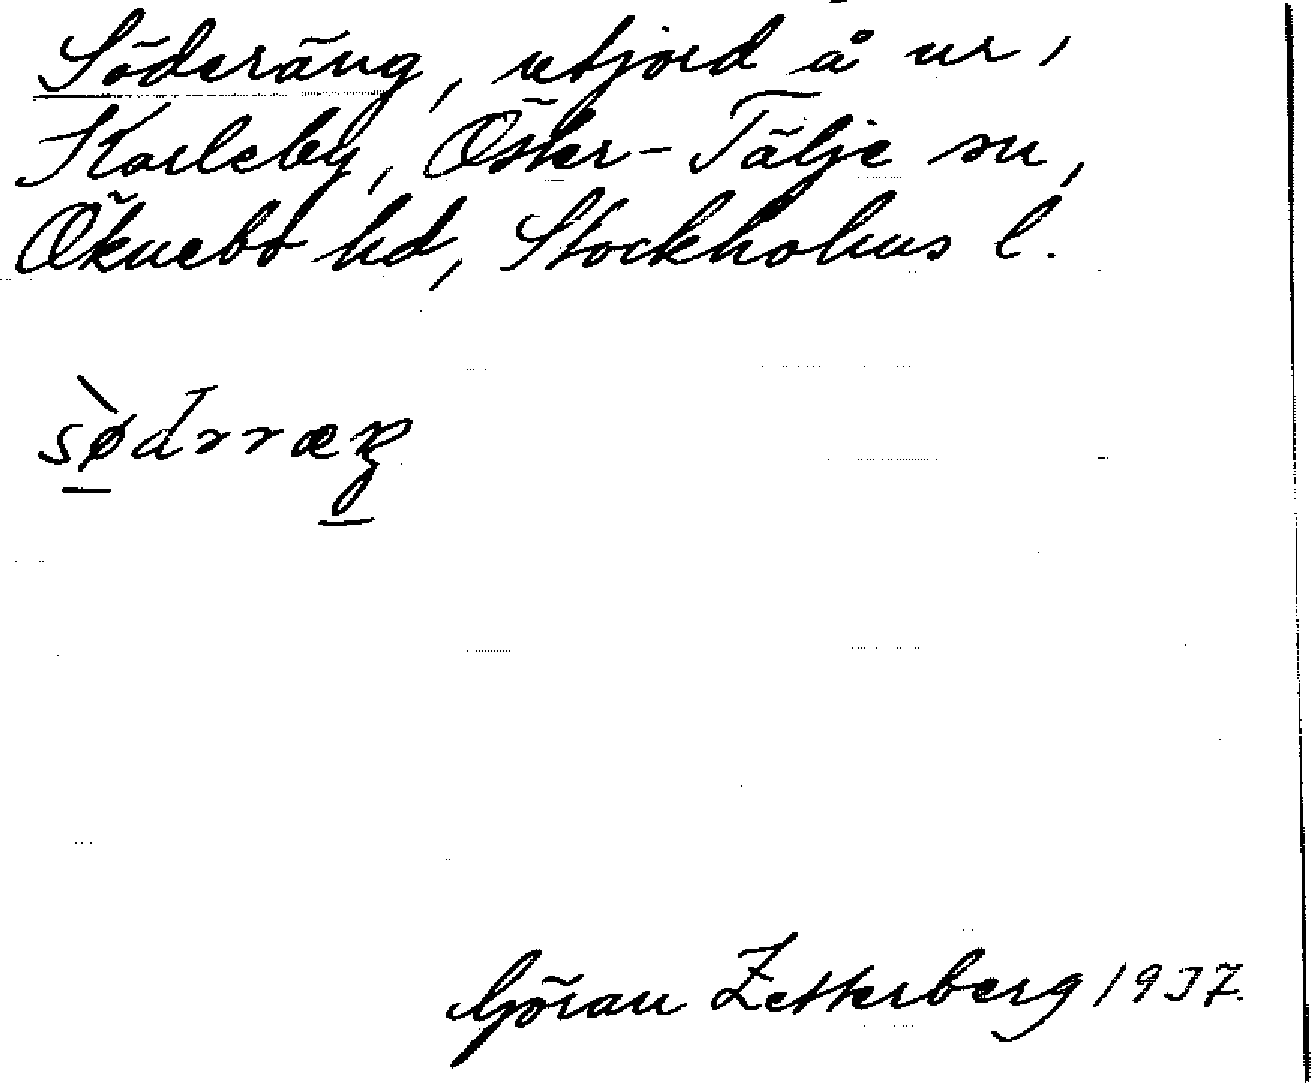 Söderäng, utjord å ur,
Karleby, Öster-Tälje sn,
Öknebo hd, Stockholms l.
Göran Zetterberg 1937.